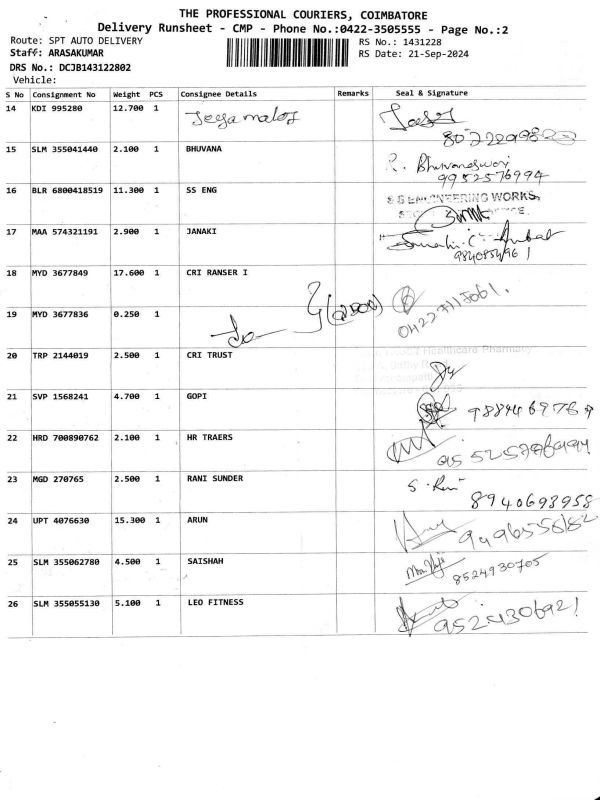 THE PROFESSIONAL COURIERS, COIMBATORE
Delivery Runsheet - CMP - Phone No.:0422-3505555 - Page No.:2
Route: SPT AUTO DELIVERY RS No.: 1431228
Staff: ARASAKUMAR RS Date: 21-Sep-2024
DRS No.: DCJB143122802
Vehicle:
S No Consignment No Weight PCS Consignee Details Remarks Seal & Signature
14 KDI 995280 12.700 1
15 SLM 355041440 2.100 1 BHUVANA R. Bhuvaneswari
9952576994
16 BLR 6800418519 11.300 1 SS ENG S S ENGINEERING WORKS,
17 MAA 574321191 2.900 1 JANAKI
18 MYD 3677849 17.600 1 CRI RANSER I
19 MYD 3677836 0.250 1
20 TRP 2144019 2.500 1 CRI TRUST Healthcare Pharmacy
21 SVP 1568241 4.700 1 GOPI
22 HRD 700890762 2.100 1 HR TRAERS
23 MGD 270765 2.500 1 RANI SUNDER S. Rani
8940693958
24 UPT 4076630 15.300 1 ARUN
25 SLM 355062780 4.500 1 SAISHAH
8524930705
26 SLM 355055130 5.100 1 LEO FITNESS